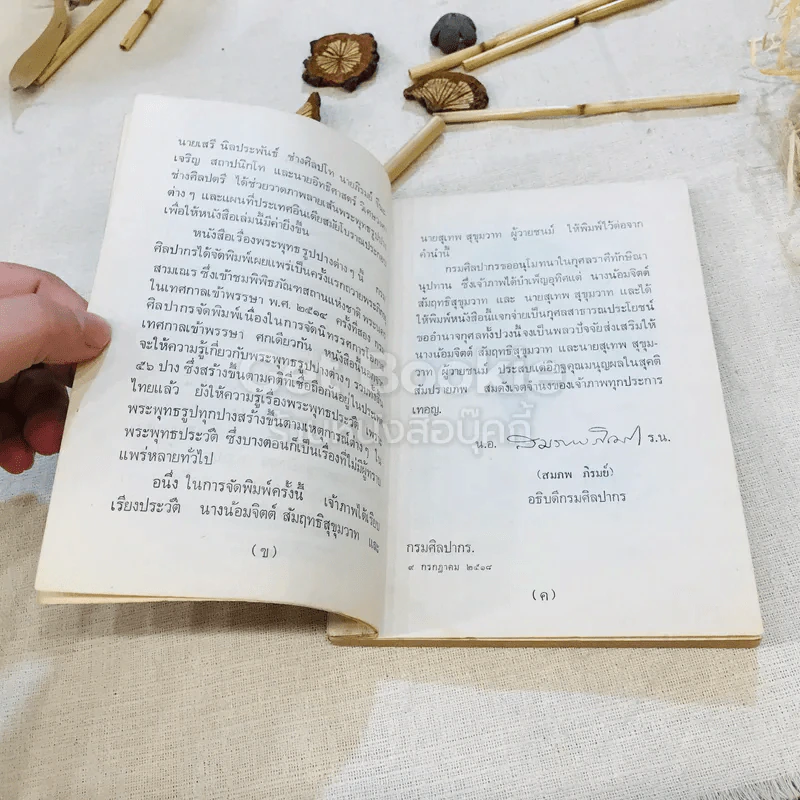 นายเสรี นิลประพันธ์ ช่างศิลปโท นายภิรมย์
เจริญ สถาปนิกโท และนายอิทธิศาสตร์ วิเศษวงศ์
ช่างศิลปตรี ได้ช่วยวาดภาพลายเส้นพระพุทธรูปปาง
ต่าง ๆ และแผนที่ประเทศอินเดียสมัยโบราณประกอบ
เพื่อให้หนังสือเล่มนี้มีค่ายิ่งขึ้น
หนังสือเรื่องพระพุทธรูปปางต่าง ๆ นี้ กรม
ศิลปากรได้จัดพิมพ์เผยแพร่เป็นครั้งแรกถวายพระภิกษุ
สามเณร ซึ่งเข้าชมพิพิธภัณฑสถานแห่งชาติ พระนคร
ในเทศกาลเข้าพรรษา พ.ศ. ๒๕๑๔ ครั้งที่สอง กรม
ศิลปากรจัดพิมพ์เนื่องในการจัดนิทรรศการโอกาส
เทศกาลเข้าพรรษา ศกเดียวกัน หนังสือนี้นอกจาก
จะให้ความรู้เกี่ยวกับพระพุทธรูปปางต่าง ๆ รวมทั้งสิ้น
๕๖ ปาง ซึ่งสร้างขึ้นตามคติที่เชื่อถือกันอยู่ในประเทศ
ไทยแล้ว ยังให้ความรู้เรื่องพระพุทธประวัติ
พระพุทธรูปทุกปางสร้างขึ้นตามเหตุการณ์ต่าง ๆ ใน
พระพุทธประวัติ ซึ่งบางตอนก็เป็นเรื่องที่ไม่มีผู้ทราบ
แพร่หลายทั่วไป
อนึ่ง ในการจัดพิมพ์ครั้งนี้ เจ้าภาพได้เรียบ
เรียงประวัติ นางน้อมจิตต์ สัมฤทธิสุขุมวาท และ
(ข)
นายสุเทพ สุขุมวาท ผู้วายชนม์ ให้พิมพ์ไว้ต่อจาก
คำนำนี้
กรมศิลปากรขออนุโมทนาในกุศลราศีทักษิณา
นุปทาน ซึ่งเจ้าภาพได้บำเพ็ญอุทิศแต่ นางน้อมจิตต์
สัมฤทธิสุขุมวาท และ นายสุเทพ สุขุมวาท และได้
ให้พิมพ์หนังสือนี้แจกจ่ายเป็นกุศลสาธารณประโยชน์
ขออำนาจกุศลทั้งปวงนี้จงเป็นพลวปัจจัยส่งเสริมให้
นางน้อมจิตต์ สัมฤทธิสุขุมวาท และนายสุเทพ สุขุม-
วาท ผู้วายชนม์ ประสบแต่อิฏฐคุณมนุญผลในสุคติ
สัมปรายภพ สมดังเจตจำนงของเจ้าภาพทุกประการ
เทอญ.
น.อ. สมภพ ภิรมย์ ร.น.
(สมภพ ภิรมย์)
อธิบดีกรมศิลปากร
กรมศิลปากร.
๙ กรกฎาคม ๒๕๑๘
(ค)
ร้านหนังสือบุ๊คดี้